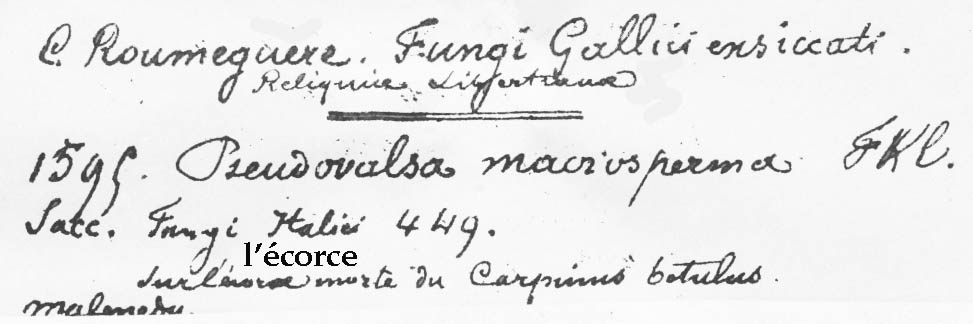 C. Roumeguere. Fungi Gallici ensiccati.
Reliquiæ Libertianæ
1595. Pseudovalsa macrosperma FKl.
Sacc. Fungi Italici 449.
l'écorce
Sur l'écorce morte du Carpinus betulus.
Malmedy.